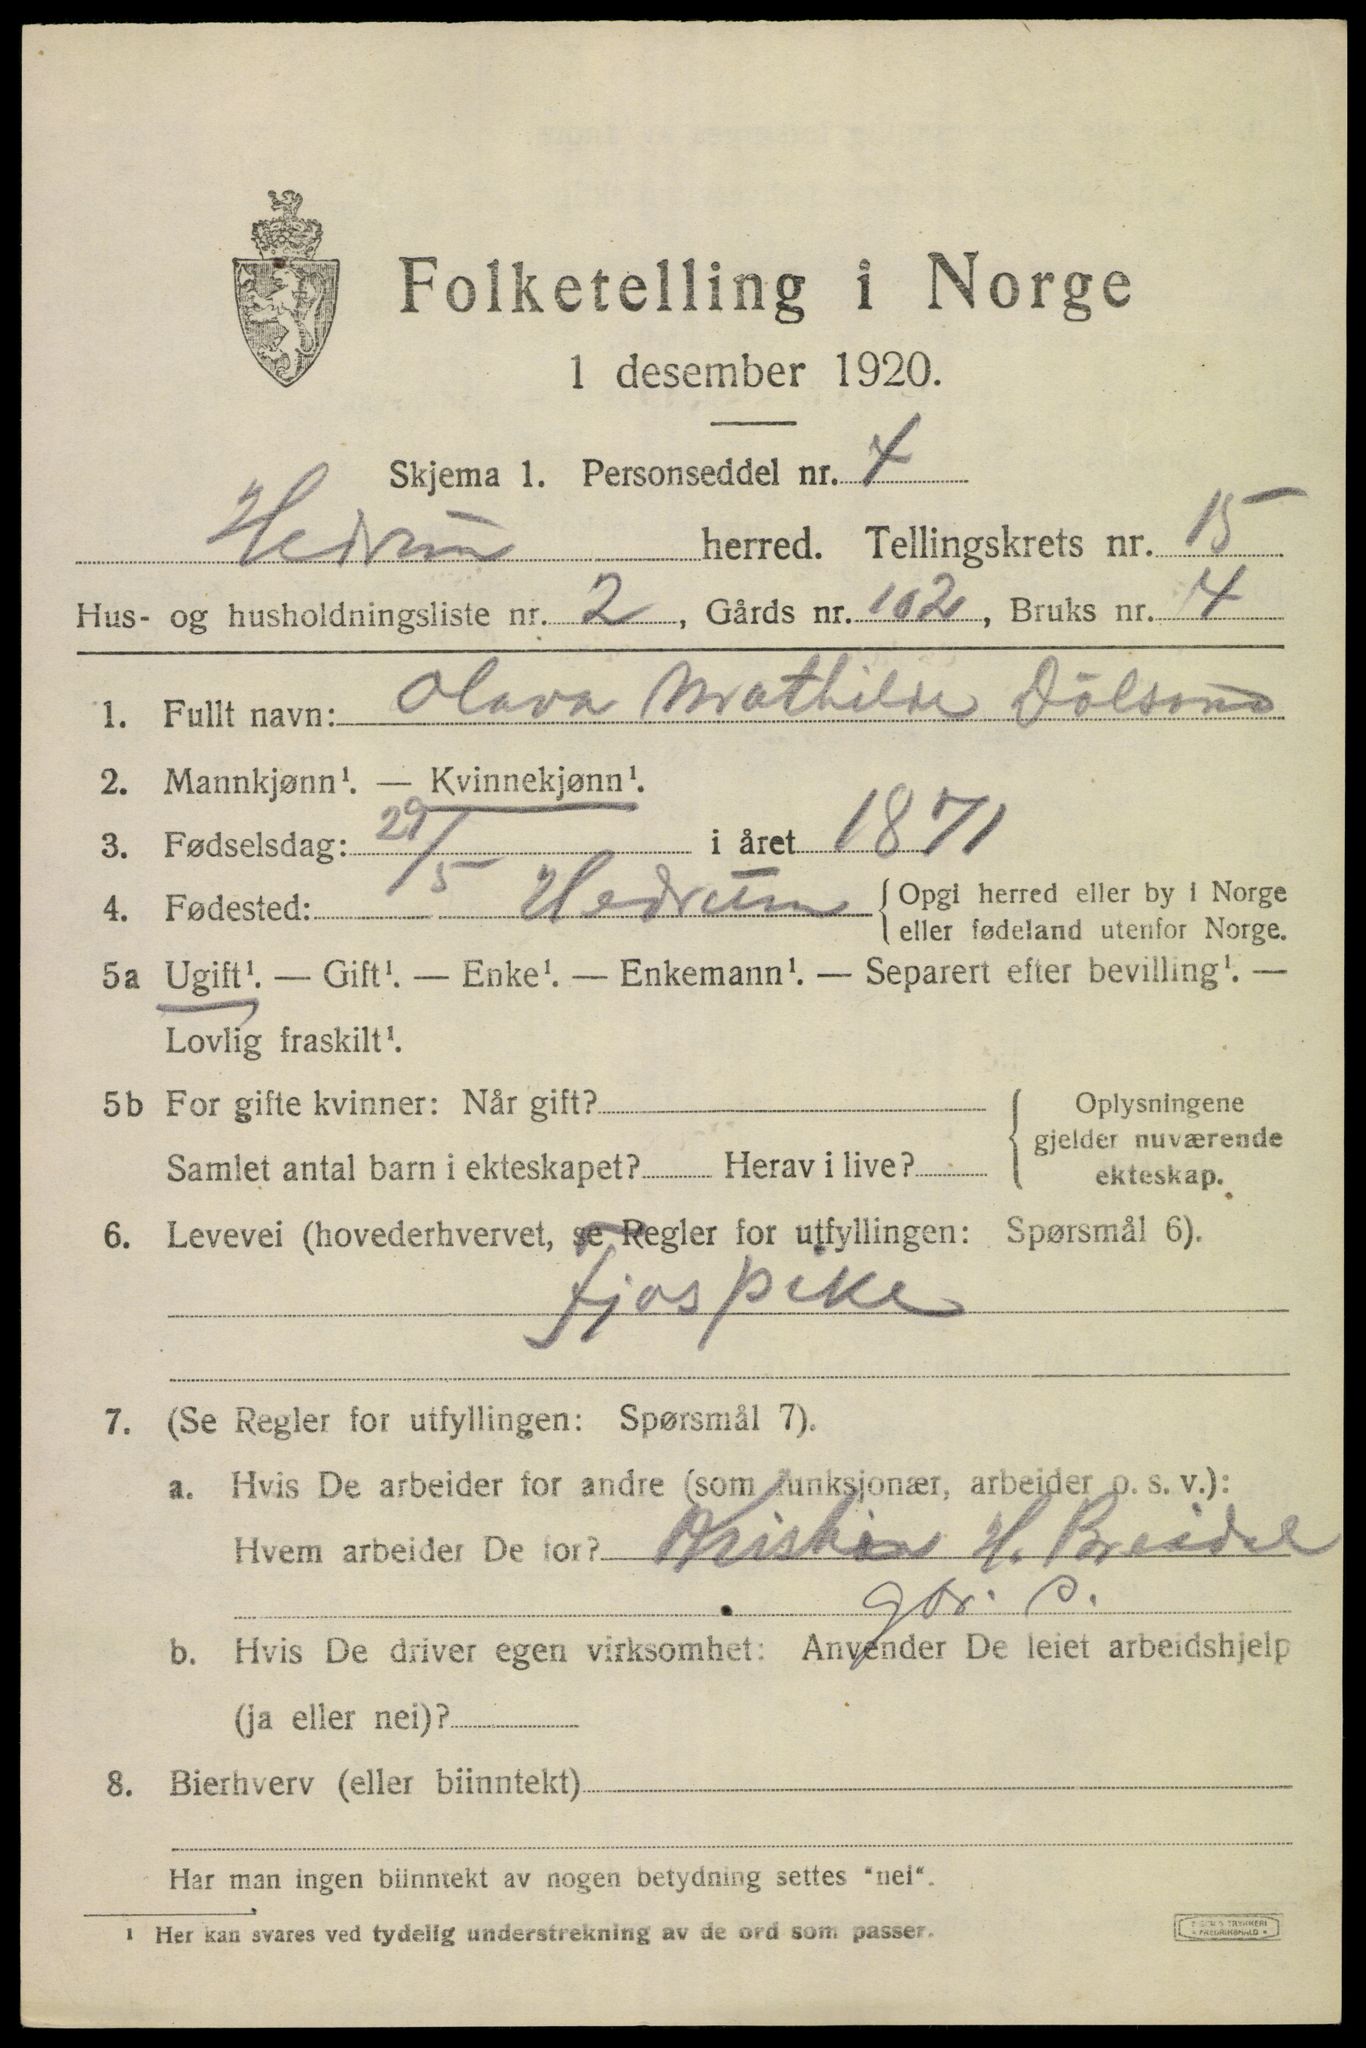 Folketelling i Norge
1 desember 1920.
Skjema 1. Personseddel nr. 4
Hedrum herred. Tellingskrets nr. 15
Hus- og husholdningsliste nr. 2, Gårds nr. 102, Bruks nr. 4
1. Fullt navn: Olava Mathilde
2. Mannkjønn¹. — Kvinnekjønn¹.
3. Fødselsdag: 29/5 i året 1871
4. Fødested: Hedrum { Opgi herred eller by i Norge
eller fødeland utenfor Norge.
5a Ugift¹. — Gift¹. — Enke¹. — Enkemann¹. — Separert efter bevilling¹. —
Lovlig fraskilt¹.
5b For gifte kvinner: Når gift? { Oplysningene
gjelder nuværende
Samlet antal barn i ekteskapet? Herav i live?
ekteskap.
6. Levevei (hovederhvervet, se Regler for utfyllingen: Spørsmål 6).
fjospike
7. (Se Regler for utfyllingen: Spørsmål 7).
a. Hvis De arbeider for andre (som funksjonær, arbeider o. s. v.):
Hvem arbeider De for? Kristian H. Breidal
gbr. s.
b. Hvis De driver egen virksomhet: Anvender De leiet arbeidshjelp
(ja eller nei)?
8. Bierhverv (eller biinntekt)
Har man ingen biinntekt av nogen betydning settes "nei".
¹ Her kan svares ved tydelig understrekning av de ord som passer.
TRYKKERI
FREDRIKSHALD